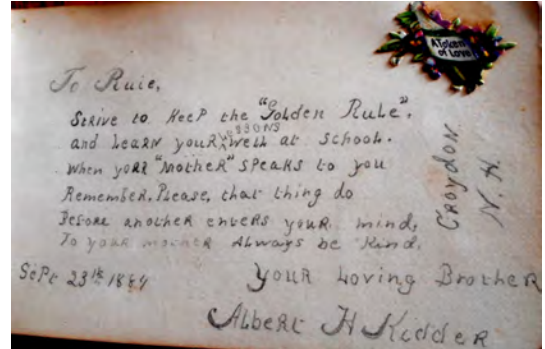 A Token
of Love
To Ruie,
Strive to Keep the "Golden Rule",
and Learn your lessons well at School.
When your "Mother" speaks to you
Remember, Please, that thing do
Before another enters your mind,
To your mother Always be Kind.
Croydon
N. H.
Sept 23th
Your Loving Brother
Albert H Kidder